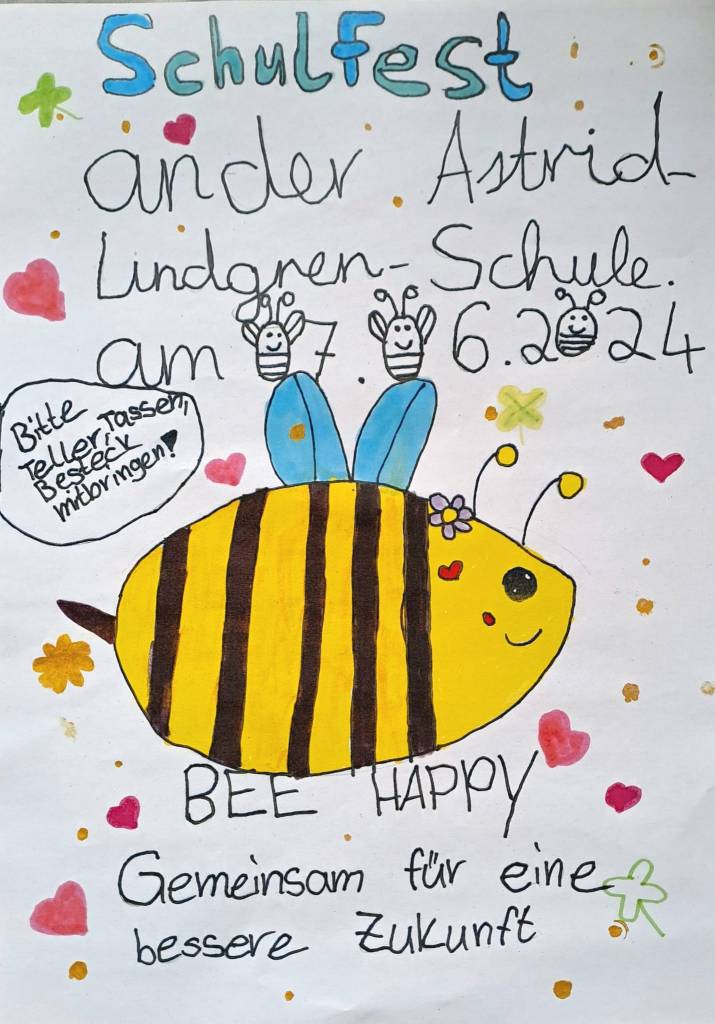 Schulfest
an der Astrid-
Lindgren-Schule.
am 07.06.2024
Bitte
Teller, Tassen,
Besteck
mitbringen!
BEE HAPPY
Gemeinsam für eine
bessere Zukunft